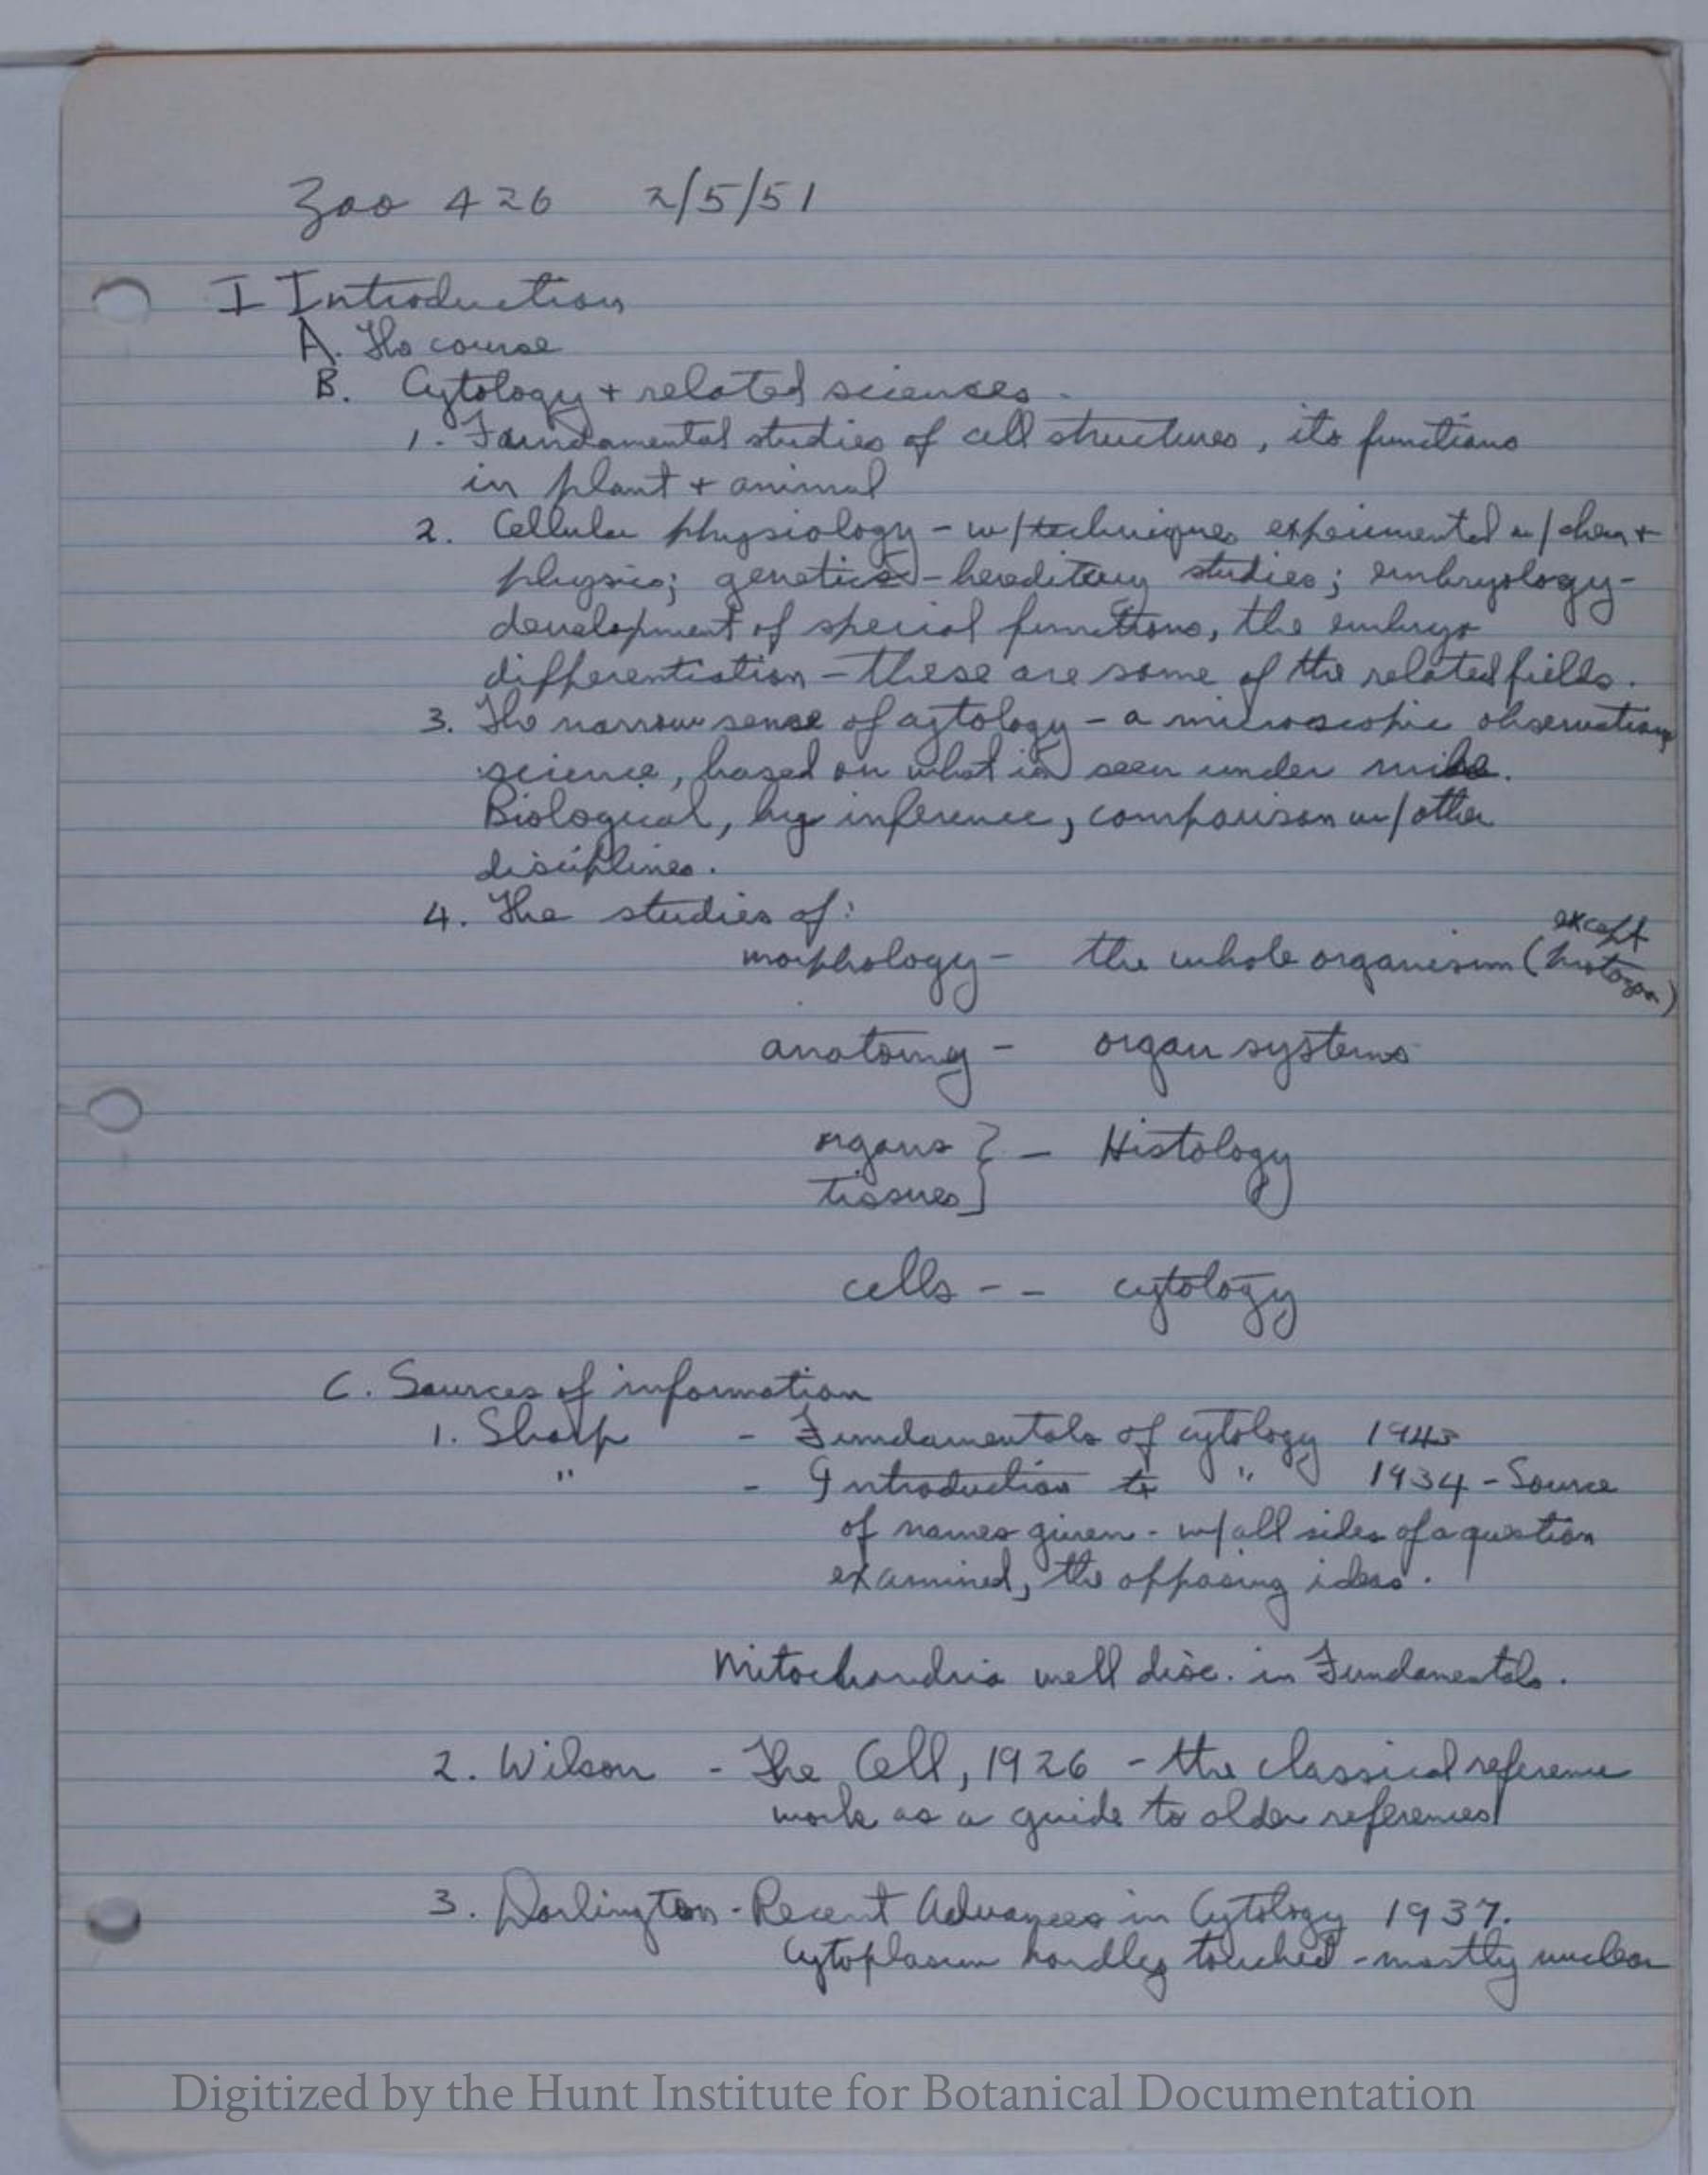 Zoo 426 2/5/51
I Introduction
A. The course
B. Cytology + related sciences -
1. Faundamental studies of cell structures, its functions
in plant + animal
2. Cellular physiology - w/techniques experimental w/chem +
physics; genetics - hereditary studies; embryology -
development of special functions, the embryo
differentiation - these are some of the related fields.
3. The narrow sense of cytology - a microscopic observation
science, based on what is seen under mike.
Biological, by inference, comparison w/other
disciplines.
4. The studies of:
except
morphology - the whole organism (
anatomy - organ systems
organs } - Histology
tissues
cells - - cytology
C. Sources of information
1. Sharp - Fundamentals of cytology 1943
" - Introduction to " 1934 - Source
of names given - w/all sides of a question
examined, the opposing ideas.
Mitochondria well disc. in Fundamentals.
2. Wilson - The Cell, 1926 - the classical reference
work as a guide to older references
3. Darlington - Recent Advances in Cytology 1937.
Cytoplasm hardley touched - mostly nuclear
Digitized by the Hunt Institute for Botanical Documentation